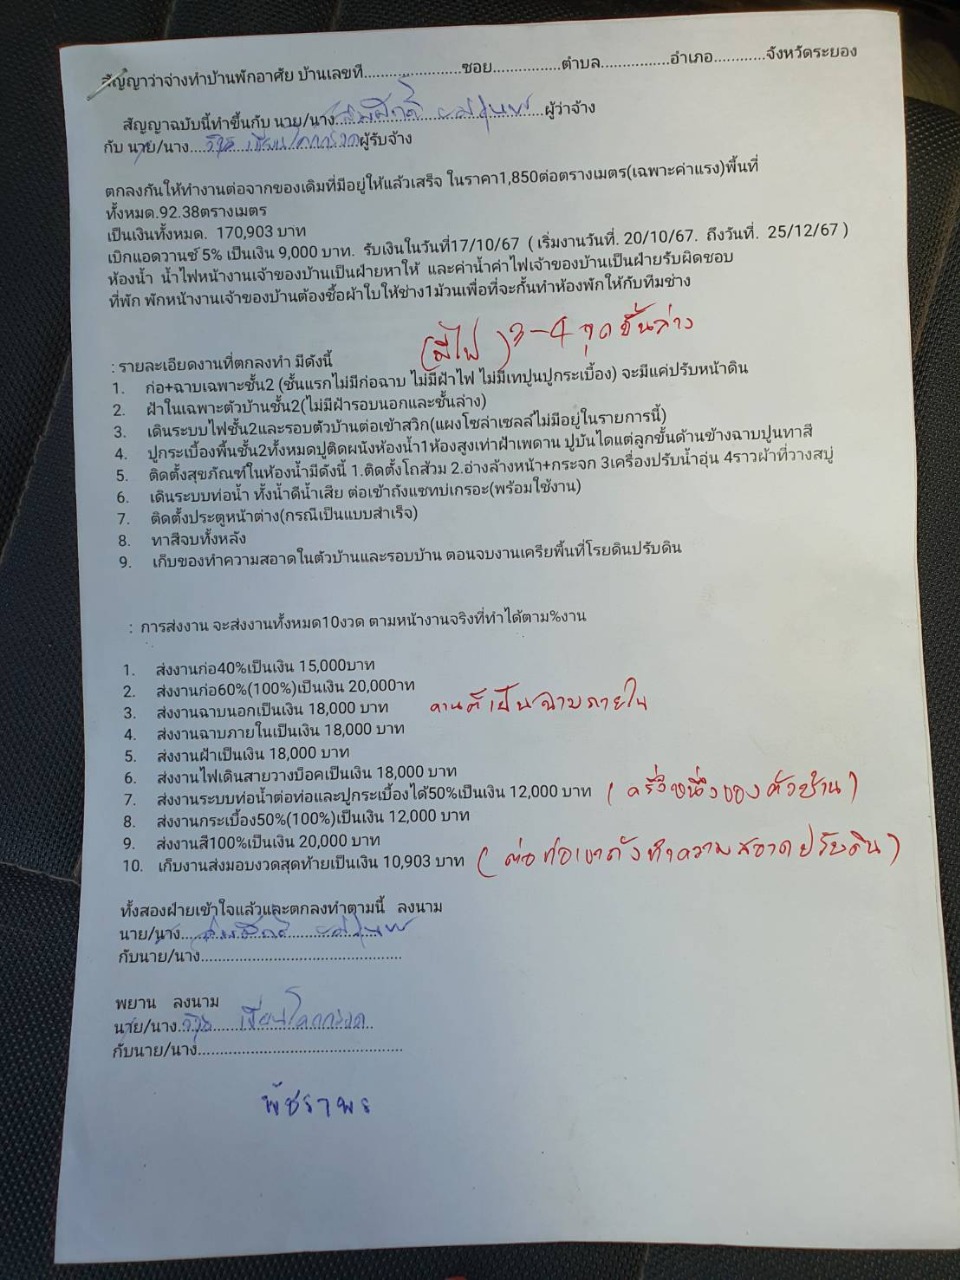 สัญญาว่าจ่างทำบ้านพักอาศัย บ้านเลขที่.......................ซอย................ตำบล................อำเภอ............จังหวัดระยอง
สัญญาฉบับนี้ทำขึ้นกับ นาย/นาง..................................................ผู้ว่าจ้าง
กับ นาย/นาง........................................ผู้รับจ้าง
ตกลงกันให้ทำงานต่อจากของเดิมที่มีอยู่ให้แล้วเสร็จ ในราคา1,850ต่อตรางเมตร(เฉพาะค่าแรง)พื้นที่
ทั้งหมด.92.38ตรางเมตร
เป็นเงินทั้งหมด. 170,903 บาท
เบิกแอดวานซ์ 5% เป็นเงิน 9,000 บาท. รับเงินในวันที่17/10/67 ( เริ่มงานวันที่. 20/10/67. ถึงวันที่. 25/12/67 )
ห้องน้ำ น้ำไฟหน้างานเจ้าของบ้านเป็นฝ่ายหาให้ และค่าน้ำค่าไฟเจ้าของบ้านเป็นฝ่ายรับผิดชอบ
ที่พัก พักหน้างานเจ้าของบ้านต้องซื้อผ้าใบให้ช่าง1ม้วนเพื่อที่จะกั้นทำห้องพักให้กับทีมช่าง
(มีไฟ) 3-4 จุดชั้นล่าง
: รายละเอียดงานที่ตกลงทำ มีดังนี้
1. ก่อ+ฉาบเฉพาะชั้น2 (ชั้นแรกไม่มีก่อฉาบ ไม่มีฝ้าไฟ ไม่มีเทปูนปูกระเบื้อง) จะมีแค่ปรับหน้าดิน
2. ฝ้าในเฉพาะตัวบ้านชั้น2(ไม่มีฝ้ารอบนอกและชั้นล่าง)
3. เดินระบบไฟชั้น2และรอบตัวบ้านต่อเข้าสวิก(แผงโซล่าเซลล์ไม่มีอยู่ในรายการนี้)
4. ปูกระเบื้องพื้นชั้น2ทั้งหมดปูติดผนังห้องน้ำ1ห้องสูงเท่าฝ้าเพดาน ปูบันไดแต่ลูกขั้นด้านข้างฉาบปูนทาสี
5. ติดตั้งสุขภัณฑ์ในห้องน้ำมีดังนี้ 1.ติดตั้งโถส้วม 2.อ่างล้างหน้า+กระจก 3เครื่องปรับน้ำอุ่น 4ราวผ้าที่วางสบู่
6. เดินระบบท่อน้ำ ทั้งน้ำดีน้ำเสีย ต่อเข้าถังแซทบ่เกรอะ(พร้อมใช้งาน)
7. ติดตั้งประตูหน้าต่าง(กรณีเป็นแบบสำเร็จ)
8. ทาสีจบทั้งหลัง
9. เก็บของทำความสะอาดในตัวบ้านและรอบบ้าน ตอนจบงานเครียพื้นที่โรยดินปรับดิน
: การส่งงาน จะส่งงานทั้งหมด10งวด ตามหน้างานจริงที่ทำได้ตาม%งาน
1. ส่งงานก่อ40%เป็นเงิน 15,000บาท
2. ส่งงานก่อ60%(100%)เป็นเงิน 20,000าท
3. ส่งงานฉาบนอกเป็นเงิน 18,000 บาท เป็นฉาบภายใน
4. ส่งงานฉาบภายในเป็นเงิน 18,000 บาท
5. ส่งงานฝ้าเป็นเงิน 18,000 บาท
6. ส่งงานไฟเดินสายวางบ็อคเป็นเงิน 18,000 บาท
7. ส่งงานระบบท่อน้ำต่อท่อและปูกระเบื้องได้50%เป็นเงิน 12,000 บาท (ครึ่งหนึ่งของตัวบ้าน)
8. ส่งงานกระเบื้อง50%(100%)เป็นเงิน 12,000 บาท
9. ส่งงานสี100%เป็นเงิน 20,000 บาท
10. เก็บงานส่งมอบงวดสุดท้ายเป็นเงิน 10,903 บาท (ต่อท่อเขาถังทำความสอาดปรับดิน)
ทั้งสองฝ่ายเข้าใจแล้วและตกลงทำตามนี้ ลงนาม
นาย/นาง..............................................
กับนาย/นาง...............................................
พยาน ลงนาม
นาย/นาง..............................................
กับนาย/นาง................................................
พัชราพร